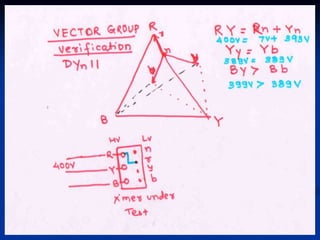 VECTOR GROUP
verification
DYn11
R
r
n
y
b
B
Y
RY = Rn + Yn
400V = 7V + 393V
Yy = Yb
389V = 389V
By > Bb
399V > 389V
HV LV
400V
R n
r
Y y
B b
Xmer under
Test